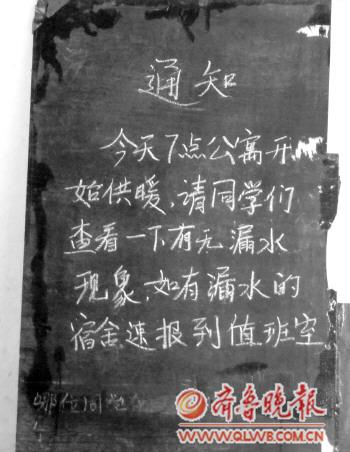 通知
今天7点公寓开
始供暖,请同学们
查看一下有无漏水
现象,如有漏水的
宿舍速报到值班室
哪位同
齐鲁晚报
WWW.QLWB.COM.CN